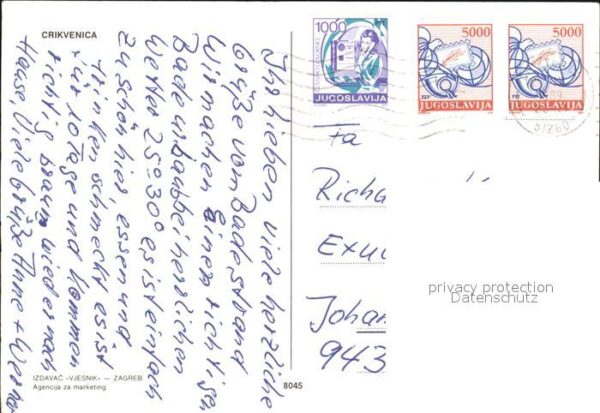 CRIKVENICA
Ihr Lieben viele herzliche
Grüße vom Badestrand
Wir machen einen richtigen
Badeurlaub bei herrlichen
Wetter 25-30° es ist einfach
zu schön hier, essen und
trinken schmeckt es ist
für 10 Tage und kommen
richtig braun wieder nach
Hause, Viele Grüße Anne + Werner
IZDAVAČ «VJESNIK» — ZAGREB
Agencija za marketing
8045
1000
JUGOSLAVIJA
5000
PTT
JUGOSLAVIJA
5000
PTT
JUGOSLAVIJA
51260
Fa
Richa
Exu
Johan
943
privacy protection
Datenschutz